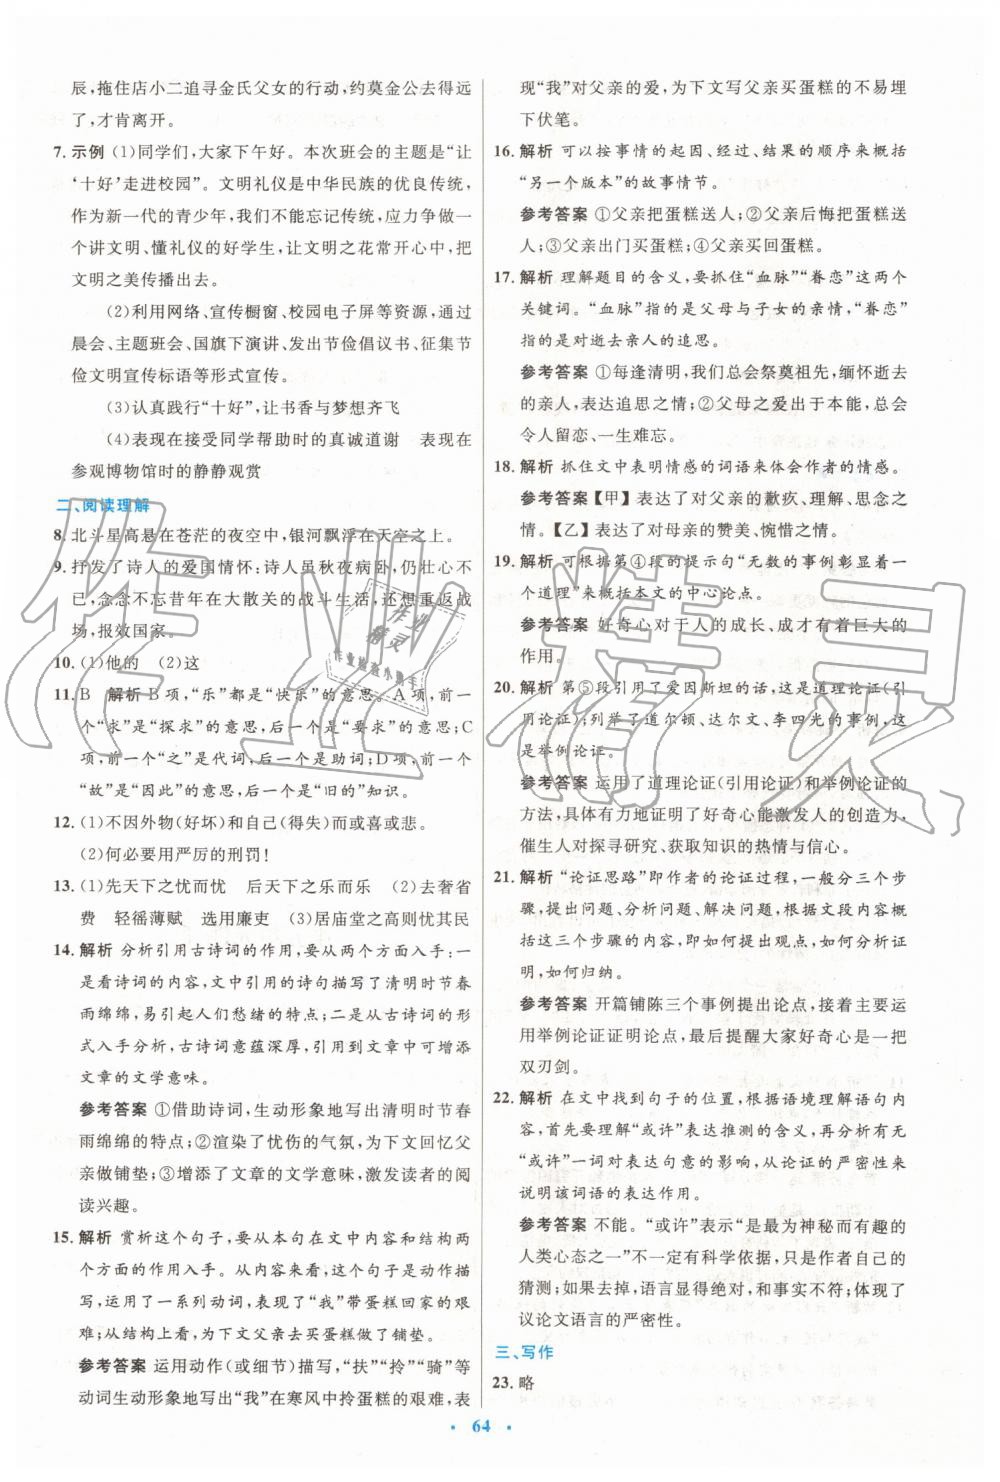 辰,拖住店小二追寻金氏父女的行动,约莫金公去得远
了,才肯离开。
7. 示例 (1)同学们,大家下午好。本次班会的主题是“让
‘十好’走进校园”。文明礼仪是中华民族的优良传统,
作为新一代的青少年,我们不能忘记传统,应力争做一
个讲文明、懂礼仪的好学生,让文明之花常开心中,把
文明之美传播出去。
(2)利用网络、宣传橱窗、校园电子屏等资源,通过
晨会、主题班会、国旗下演讲、发出节俭倡议书、征集节
俭文明宣传标语等形式宣传。
(3)认真践行“十好”,让书香与梦想齐飞
(4)表现在接受同学帮助时的真诚道谢 表现在
参观博物馆时的静静观赏
二、阅读理解
8. 北斗星高悬在苍茫的夜空中,银河飘浮在天空之上。
9. 抒发了诗人的爱国情怀:诗人虽秋夜病卧,仍壮心不
已,念念不忘昔年在大散关的战斗生活,还想重返战
场,报效国家。
10. (1)他的 (2)这
11. B 解析 B项,“乐”都是“快乐”的意思。A项,前一
个“求”是“探求”的意思,后一个是“要求”的意思;C
项,前一个“之”是代词,后一个是助词;D项,前一个
“故”是“因此”的意思,后一个是“旧的”知识。
12. (1)不因外物(好坏)和自己(得失)而或喜或悲。
(2)何必要用严厉的刑罚!
13. (1)先天下之忧而忧 后天下之乐而乐 (2)去奢省
费 轻徭薄赋 选用廉吏 (3)居庙堂之高则忧其民
14. 解析 分析引用古诗词的作用,要从两个方面入手:一
是看诗词的内容,文中引用的诗句描写了清明时节春
雨绵绵,易引起人们愁绪的特点;二是从古诗词的形
式入手分析,古诗词意蕴深厚,引到文章中可增添
文章的文学意味。
参考答案 ①借助诗词,生动形象地写出清明时节春
雨绵绵的特点;②渲染了忧伤的气氛,为下文回忆父
亲做铺垫;③增添了文章的文学意味,激发读者的阅
读兴趣。
15. 解析 赏析这个句子,要从本句在文中内容和结构两
方面的作用入手。从内容来看,这个句子是动作描
写,运用了一系列动词,表现了“我”带蛋糕回家的艰
难;从结构上看,为下文父亲去买蛋糕做了铺垫。
参考答案 运用动作(或细节)描写,“扶”“拎”“骑”等
动词生动形象地写出“我”在寒风中拎蛋糕的艰难,表
现“我”对父亲的爱,为下文写父亲买蛋糕的不易埋
下伏笔。
16. 解析 可以按事情的起因、经过、结果的顺序来概括
“另一个版本”的故事情节。
参考答案 ①父亲把蛋糕送人;②父亲后悔把蛋糕送
人;③父亲出门买蛋糕;④父亲买回蛋糕。
17. 解析 理解题目的含义,要抓住“血脉”“眷恋”这两个
关键词。“血脉”指的是父母与子女的亲情,“眷恋”
指的是对逝去亲人的追思。
参考答案 ①每逢清明,我们总会祭奠祖先,缅怀逝去
的亲人,表达追思之情;②父母之爱出于本能,总会
令人留恋、一生难忘。
18. 解析 抓住文中表明情感的词语来体会作者的情感。
参考答案【甲】表达了对父亲的歉疚、理解、思念之
情。【乙】表达了对母亲的赞美、惋惜之情。
19. 解析 可根据第④段的提示句“无数的事例彰显着一
个道理”来概括本文的中心论点。
参考答案 好奇心对于人的成长、成才有着巨大的
作用。
20. 解析 第⑤段引用了爱因斯坦的话,这是道理论证(引
用论证);列举了道尔顿、达尔文、李四光的事例,这
是举例论证。
参考答案 运用了道理论证(引用论证)和举例论证的
方法,具体有力地证明了好奇心能激发人的创造力,
催生人对探寻研究、获取知识的热情与信心。
21. 解析 “论证思路”即作者的论证过程,一般分三个步
骤,提出问题、分析问题、解决问题。根据文段内容概
括这三个步骤的内容,即如何提出观点,如何分析证
明,如何归纳。
参考答案 开篇铺陈三个事例提出论点,接着主要运
用举例论证证明论点,最后提醒大家好奇心是一把
双刃剑。
22. 解析 在文中找到句子的位置,根据语境理解语句内
容,首先要理解“或许”表推测的含义,再分析有无
“或许”一词对表达句意的影响,从论证的严密性来
说明该词语的表达作用。
参考答案 不能。“或许”表示“是最为神秘而有趣的
人类心态之一”不一定有科学依据,只是作者自己的
猜测;如果去掉,语言显得绝对,和事实不符;体现了
议论文语言的严密性。
三、写作
23. 略
· 64 ·
作业精灵